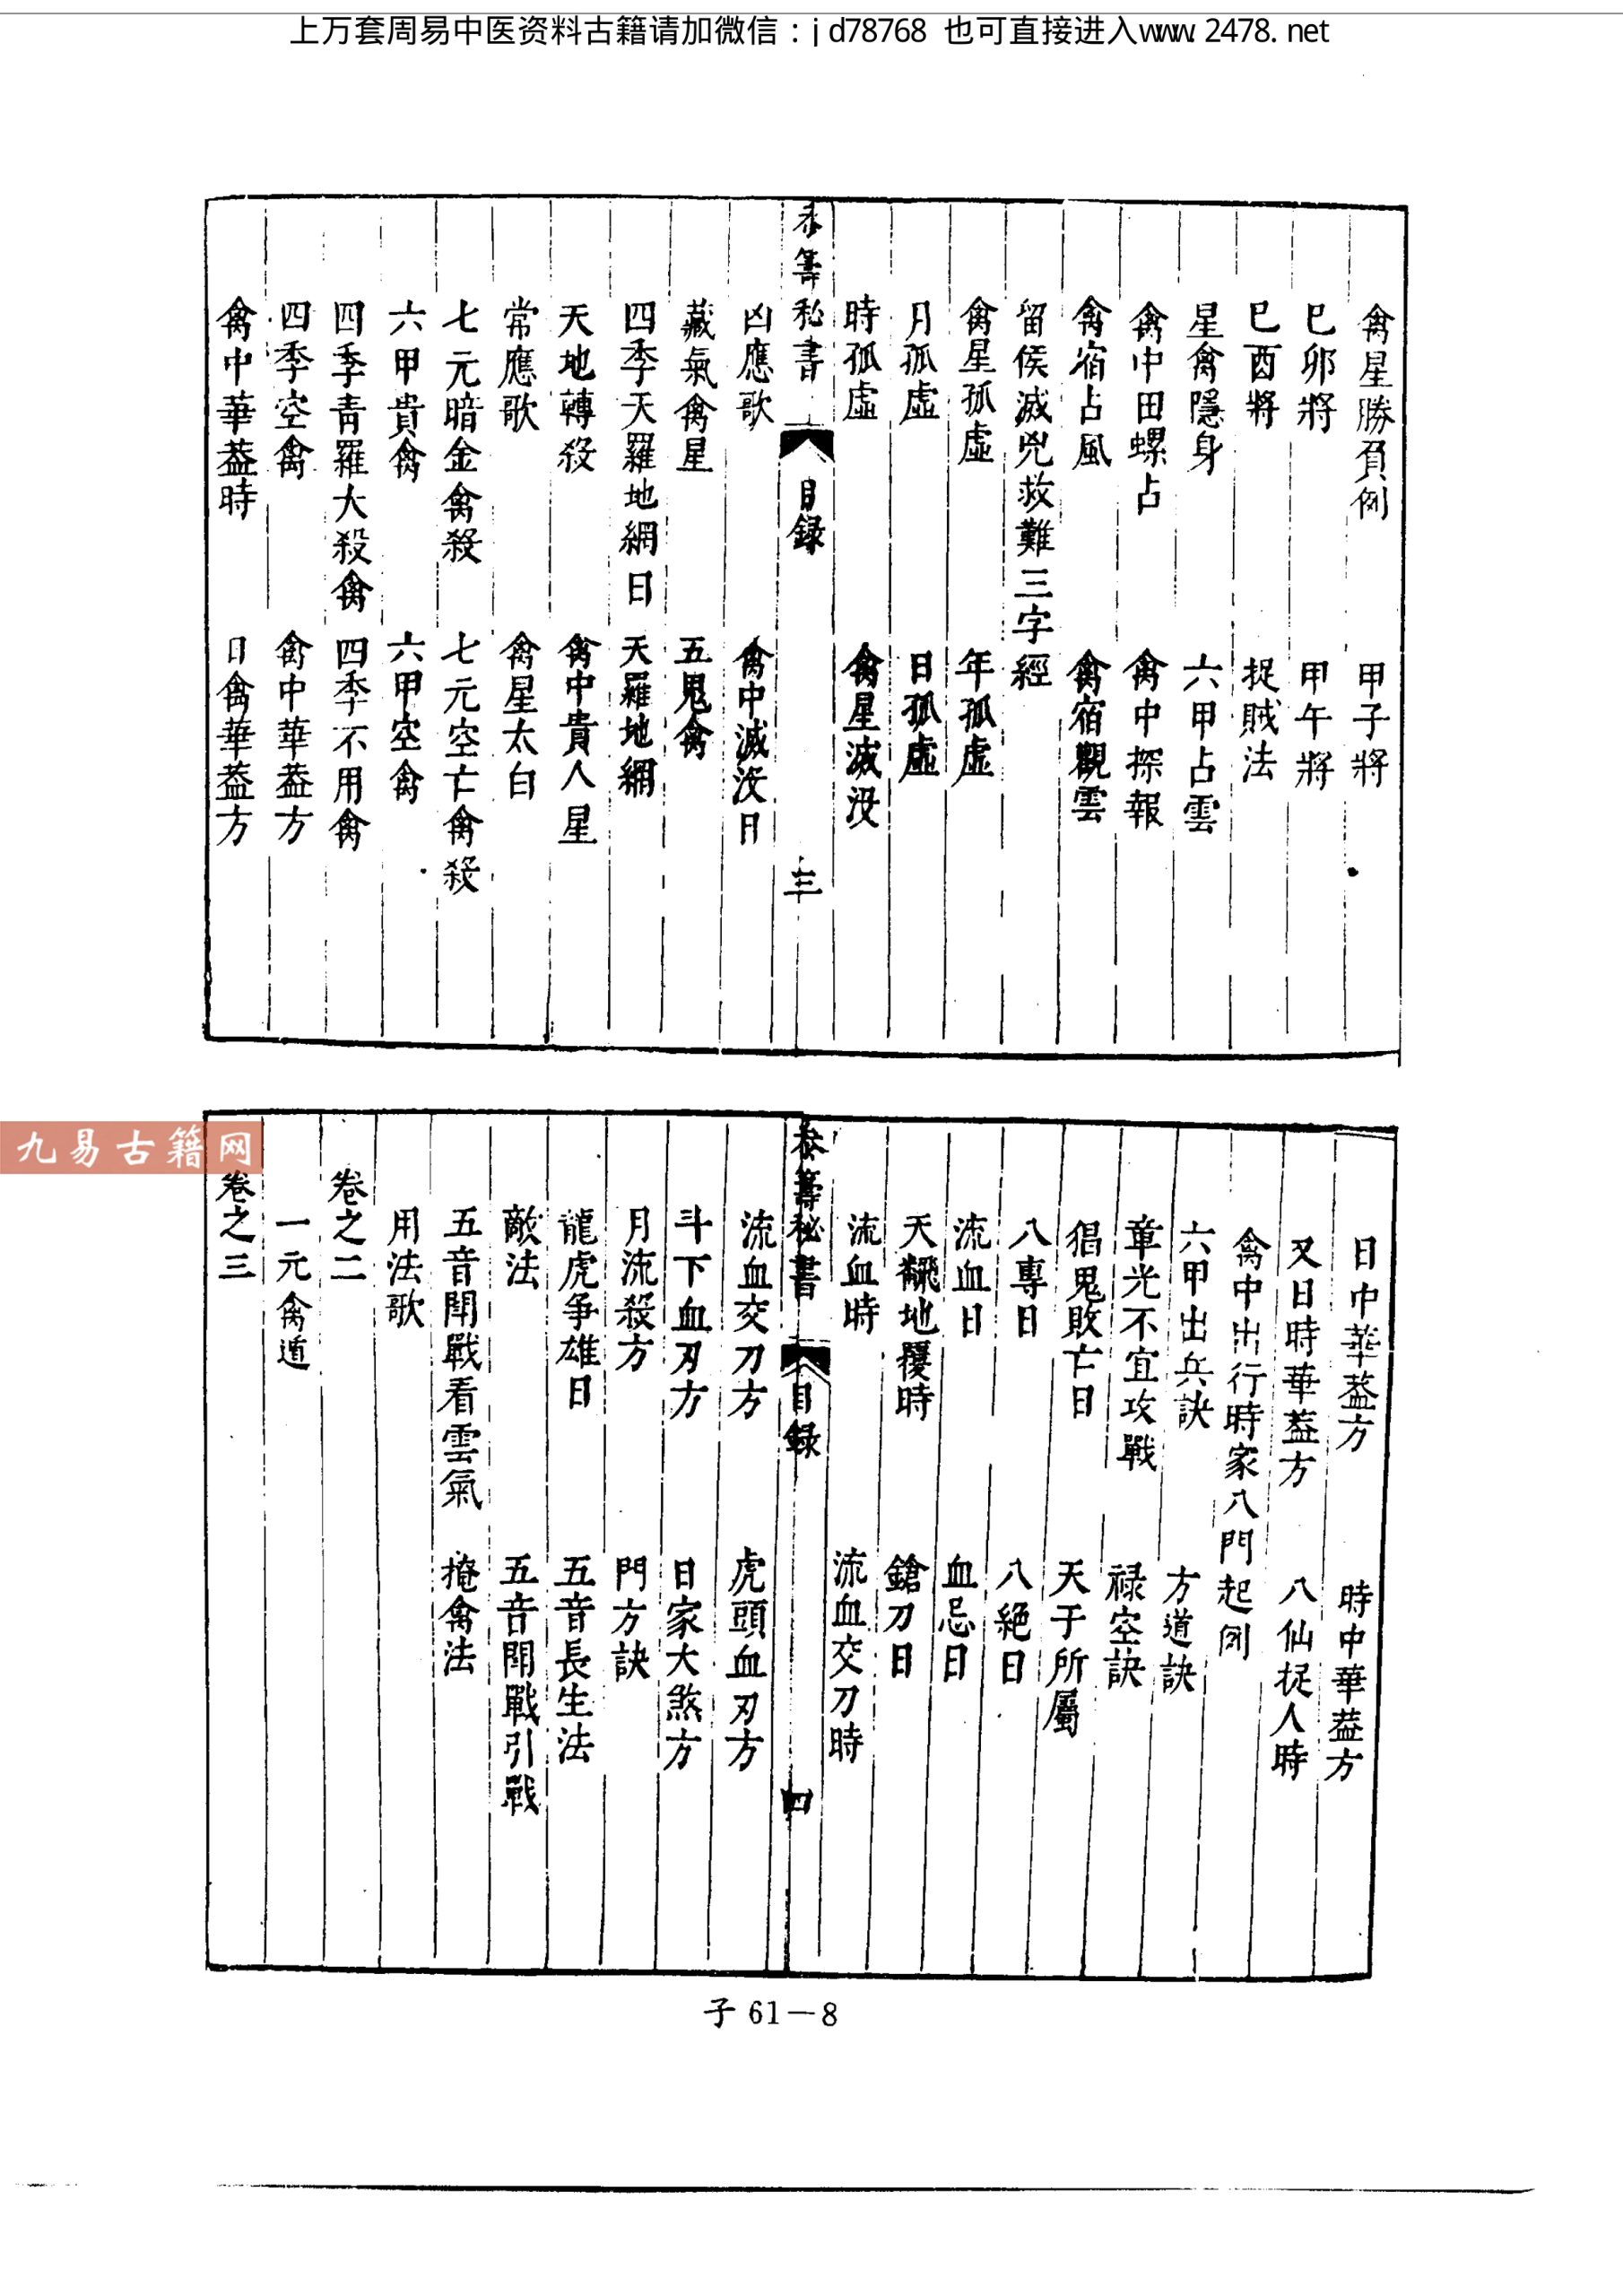 上万套周易中医资料古籍请加微信：jd78768 也可直接进入www.2478.net
禽星勝負例 甲子將
巳卯將 甲午將
巳酉將 捉賊法
星禽隱身 六甲占雲
禽中田螺占 禽中探報
禽宿占風 禽宿觀雲
留侯滅兇救難三字經
禽星孤虛 年孤虛
月孤虛 日孤虛
時孤虛 禽星滅没
秘書 目録 三
凶應歌 禽中滅没日
藏氣禽星 五鬼禽
四季天羅地網日 天羅地網
天地轉殺 禽中貴人星
常應歌 禽星太白
七元暗金禽殺 七元空亡禽殺
六甲貴禽 六甲空禽
四季青羅大殺禽 四季不用禽
四季空禽 禽中華葢方
禽中華葢時 日禽華葢方
日中華葢方 時中華葢方
又日時華葢方 八仙捉人時
禽中出行時家八門起例
六甲出兵訣 方道訣
章光不宜攻戰 禄空訣
猖鬼敗亡日 天子所屬
八專日 八絕日
流血日 血忌日
天飜地覆時 鎗刀日
流血時 流血交刀時
秘書 目録 四
流血交刀方 虎頭血刃方
斗下血刃方 日家大煞方
月流殺方 門方訣
龍虎爭雄日 五音長生法
敵法 五音鬥戰引戰
五音鬥戰看雲氣 掩禽法
用法歌
卷之二
一元禽遁
卷之三
九易古籍网
子 61－8